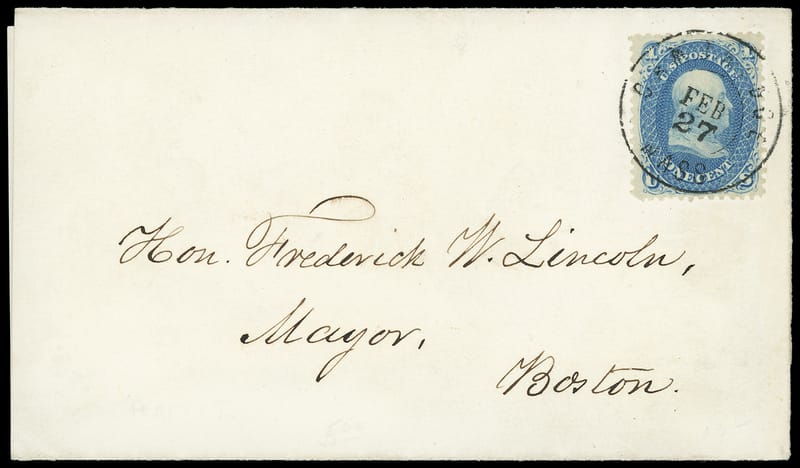 U.S. POSTAGE
CAMBRIDGE
FEB
27
MASS
ONE CENT
Hon. Frederick W. Lincoln,
Mayor,
Boston.